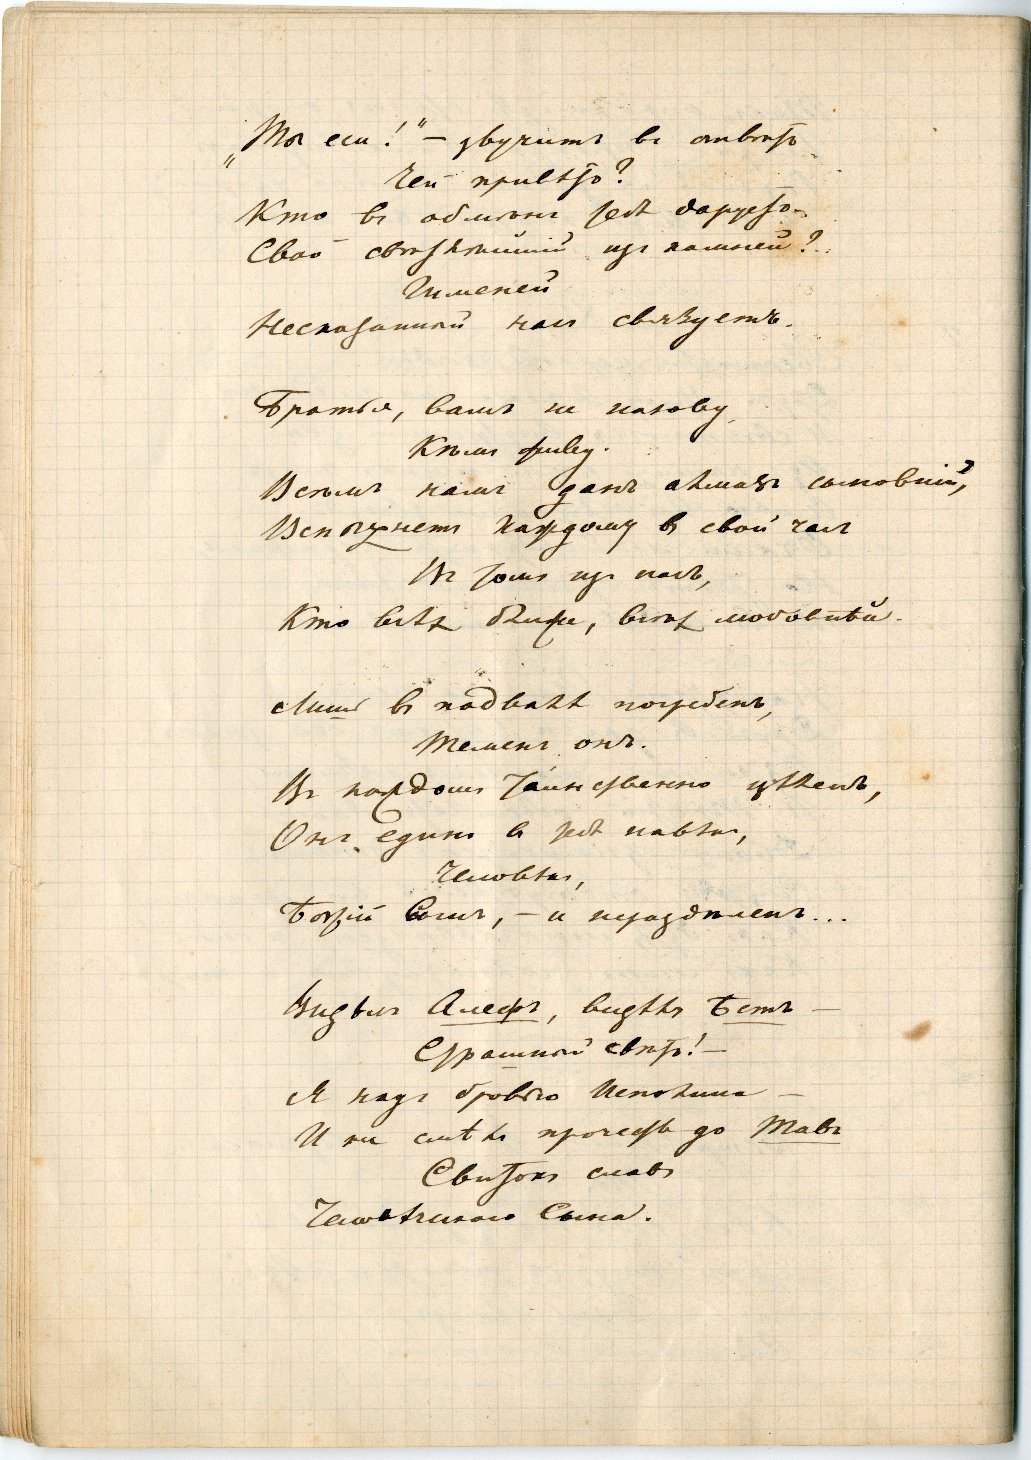 „Ты еси!“ — звучитъ въ отвѣтъ
Чей привѣтъ?
Кто въ обмѣнъ тебѣ даруетъ
Свой святѣйшій изъ камней?
Гименей
Несказанный насъ связуетъ.
Братья, вамъ не назову,
Кѣмъ живу.
Всѣмъ намъ данъ алмазъ сыновній,
Вспыхнетъ каждому въ свой часъ
Въ томъ изъ насъ,
Кто всѣхъ ближе, всѣхъ любовнѣй.
Лишь въ подвалѣ погребенъ,
Теменъ онъ.
Въ каждомъ таинственно цѣленъ,
Онъ единъ въ
Человѣкъ,
Божій Сынъ, — и нераздѣленъ...
Видѣлъ Алефъ, видѣлъ Бетъ —
Страшный свѣтъ! —
Я надъ бровью Исполина —
И не смѣлъ прочесть до Тавъ
Свитокъ славъ
Человѣческаго Сына.